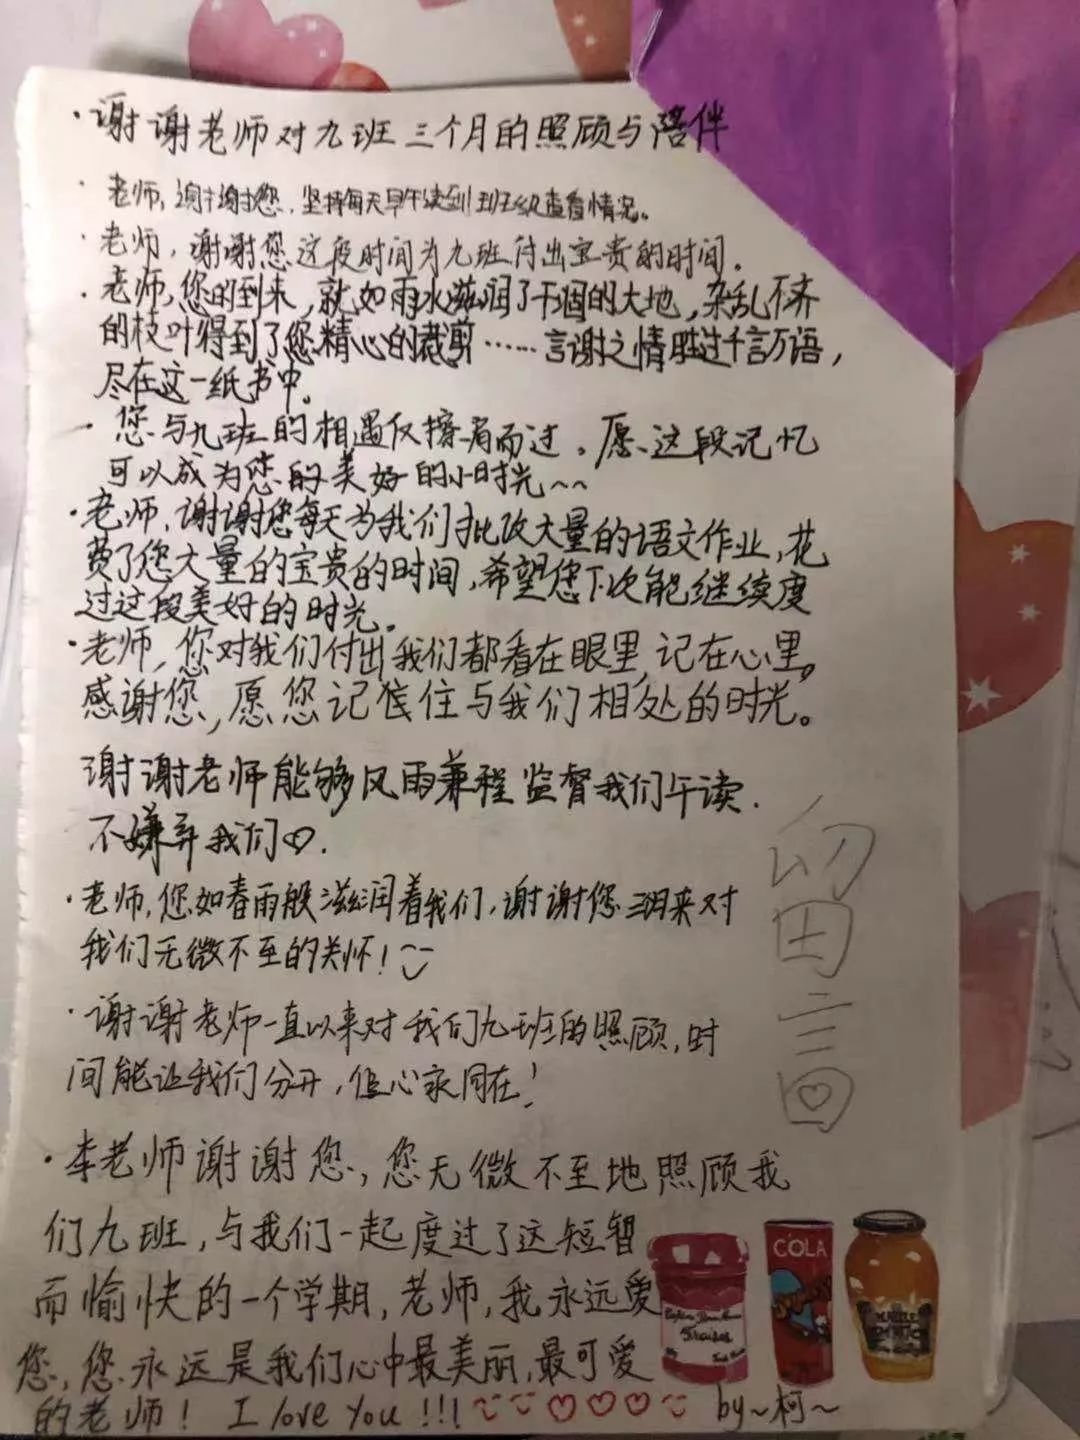 ·谢谢老师对九班三个月的照顾与陪伴
·老师,谢谢您,坚持每天早午读到班级查看情况。
·老师,谢谢您这段时间为九班付出宝贵的时间.
·老师,您的到来,就如雨水滋润了干涸的大地,杂乱不齐
的枝叶得到了您精心的裁剪……言谢之情胜过千言万语,
尽在这一纸书中。
·您与九班的相遇仅擦肩而过。愿这段记忆
可以成为您的美好的小时光~~
·老师,谢谢您每天为我们批改大量的语文作业,花
费了您大量的宝贵的时间,希望您下次能继续度
过这段美好的时光。
·老师,您对我们付出我们都看在眼里,记在心里。
感谢您,愿您记住与我们相处的时光。
谢谢老师能够风雨兼程监督我们午读.
不嫌弃我们♡.
·老师,您如春雨般滋润着我们,谢谢您三月来对
我们无微不至的关怀!
·谢谢老师一直以来对我们九班的照顾,时
间能让我们分开,但心永同在!
留言
·李老师谢谢您,您无微不至地照顾我
们九班,与我们一起度过了这短暂
而愉快的一个学期,老师,我永远爱
您,您永远是我们心中最美丽,最可爱
的老师! I love You !!! ♡♡♡ by~柯~
COLA
Fraises